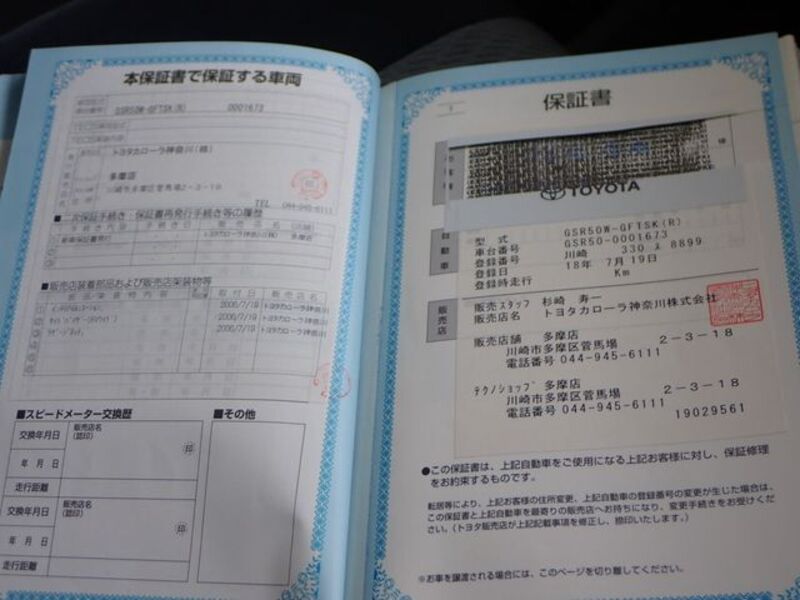 本保証書で保証する車両
GSR50W-GFTSK(R) 0001673
トヨタカローラ神奈川(株)
多摩店
川崎市多摩区菅馬場2-3-18
TEL 044-945-6111
■二次保証手続き・保証書再発行手続き等の履歴
手続き内容 手続き日 販売店名
トヨタカローラ神奈川(株) 多摩店
■販売店装着部品および販売店架装物等
取付日 販売店名
2006/7/19 トヨタカローラ神奈川
2006/7/19 トヨタカローラ神奈川
2006/7/19 トヨタカローラ神奈川
■スピードメーター交換歴
交換年月日 販売店名
(認印)
年 月 日 印
走行距離
交換年月日 販売店名
(認印)
年 月 日 印
走行距離
■その他
保証書
TOYOTA
自動車
型式 GSR50W-GFTSK(R)
車台番号 GSR50-0001673
登録番号 川崎 330 る 8899
登録日 18年 7月19日
登録時走行 Km
販売店
販売スタッフ 杉崎 寿一
販売店名 トヨタカローラ神奈川株式会社
販売店舗 多摩店
川崎市多摩区菅馬場 2-3-18
電話番号 044-945-6111
テクノショップ 多摩店
川崎市多摩区菅馬場 2-3-18
電話番号 044-945-6111
19029561
●この保証書は、上記自動車をご使用になる上記お客様に対し、保証修理
をお約束するものです。
転居等により、上記お客様の住所変更、上記自動車の登録番号の変更が生じた場合は、
この保証書と上記自動車を最寄りの販売店へお持ちになり、変更手続きをお受けくだ
さい。(トヨタ販売店が上記記載事項を修正し、捺印いたします。)
※お車を譲渡される場合には、このページを切り離してください。